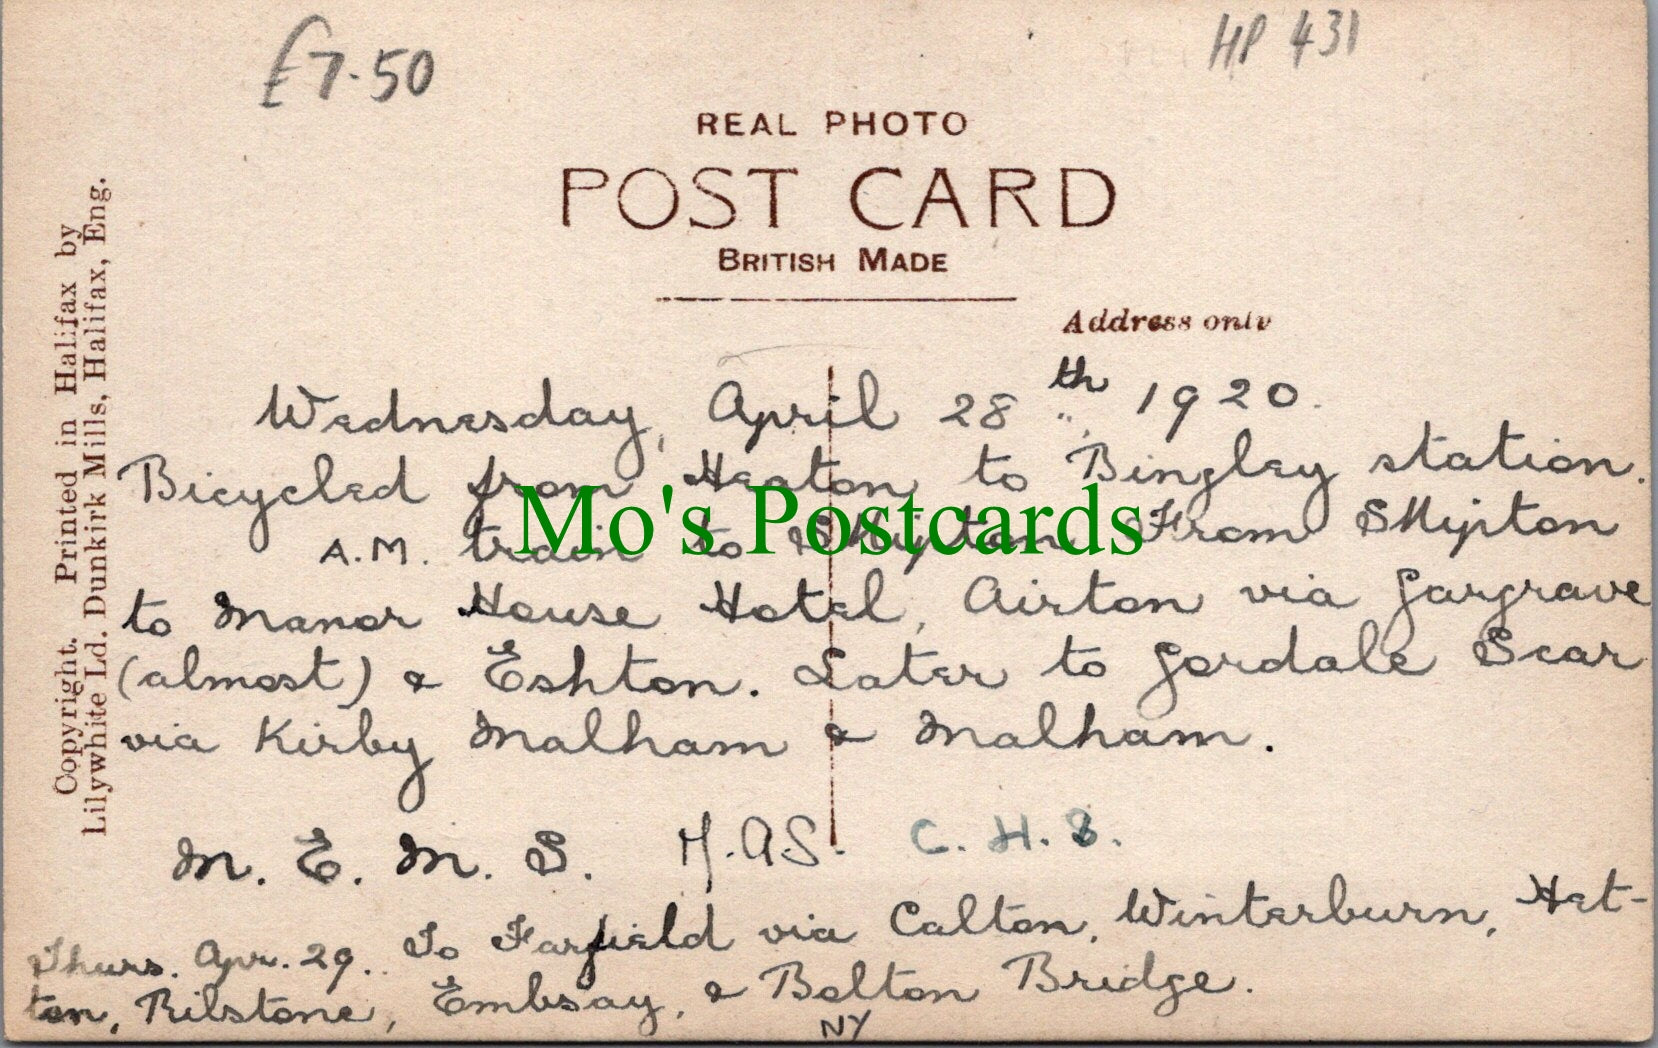 £7.50
HP 431
REAL PHOTO
POST CARD
BRITISH MADE
Address only
Copyright. Printed in Halifax by
Lilywhite Ld. Dunkirk Mills, Halifax, Eng.
Wednesday, April 28th, 1920.
Bicycled from Heaton to Bingley station.
A.M. train to Skipton. From Skipton
to Manor House Hotel, Airton via Gargrave
(almost) & Eshton. Later to Gordale Scar
via Kirby Malham & Malham.
M. E. M. S. M.A.S. C. H. S.
Thurs. Apr. 29. To Farfield via Calton, Winterburn, Het-
ton, Rilstone, Embsay, & Bolton Bridge.
NY
Mo's Postcards